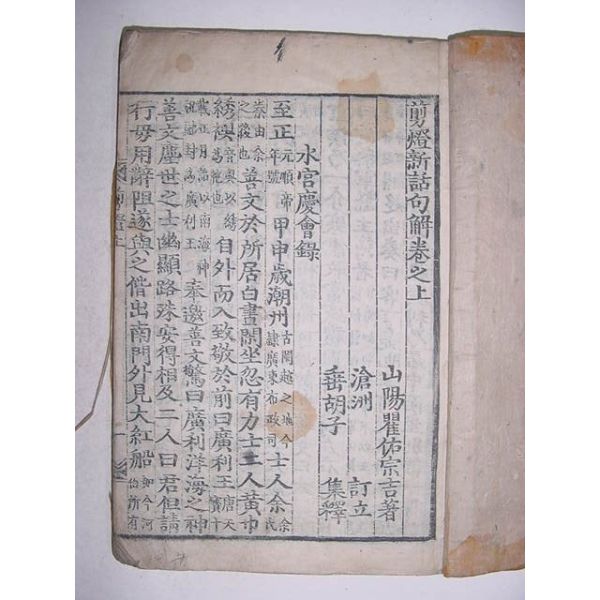 剪燈新話句解卷之上
山陽瞿佑宗吉著
滄洲 訂正
垂胡子 集釋
水宮慶會錄
至正元順帝年號甲申歲潮州古閩越之地今隷廣東布政司士人余余氏
善文於所居白晝閑坐忽有力士二人黃巾
綉襖自外而入致敬於前曰廣利王唐天寶十
奉邀善文驚曰廣利洋海之神
善文塵世之士幽顯路殊安得相及二人曰君但請
行毋用辭阻遂與之偕出南門外見大紅船如今河